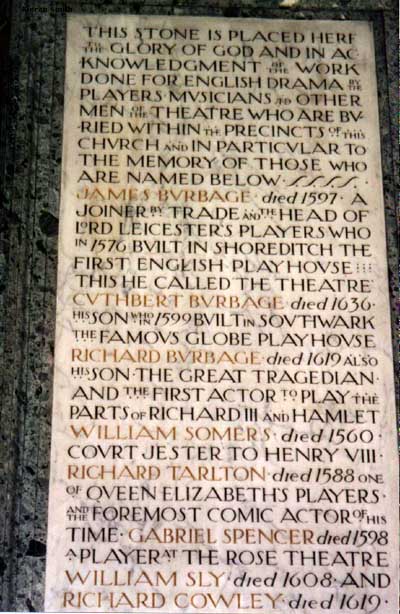 Kieran Smith
THIS STONE IS PLACED HERE
TO THE GLORY OF GOD AND IN AC-
KNOWLEDGMENT OF THE WORK
DONE FOR ENGLISH DRAMA BY
PLAYERS·MVSICIANS AND OTHER
MEN OF THE THEATRE WHO ARE BV-
RIED WITHIN THE PRECINCTS OF THIS
CHVRCH AND IN PARTICVLAR TO
THE MEMORY OF THOSE WHO
ARE NAMED BELOW
JAMES BVRBAGE·died 1597·A
JOINER BY TRADE AND THE HEAD OF
LORD LEICESTER'S PLAYERS WHO
IN 1576 BVILT IN SHOREDITCH THE
FIRST ENGLISH PLAYHOVSE
THIS HE CALLED THE THEATRE
CVTHBERT BVRBAGE·died 1636·
HIS SON WHO IN 1599 BVILT IN SOVTHWARK
THE FAMOVS GLOBE PLAYHOVSE
RICHARD BVRBAGE·died 1619 ALSO
HIS SON·THE GREAT TRAGEDIAN·
AND THE FIRST ACTOR TO PLAY THE
PARTS OF RICHARD III AND HAMLET
WILLIAM SOMERS·died 1560·
COVRT JESTER TO HENRY VIII·
RICHARD TARLTON·died 1588 ONE
OF QVEEN ELIZABETH'S PLAYERS·
AND THE FOREMOST COMIC ACTOR OF HIS
TIME·GABRIEL SPENCER died 1598
A PLAYER AT THE ROSE THEATRE
WILLIAM SLY·died 1608·AND
RICHARD COWLEY·died 1619·